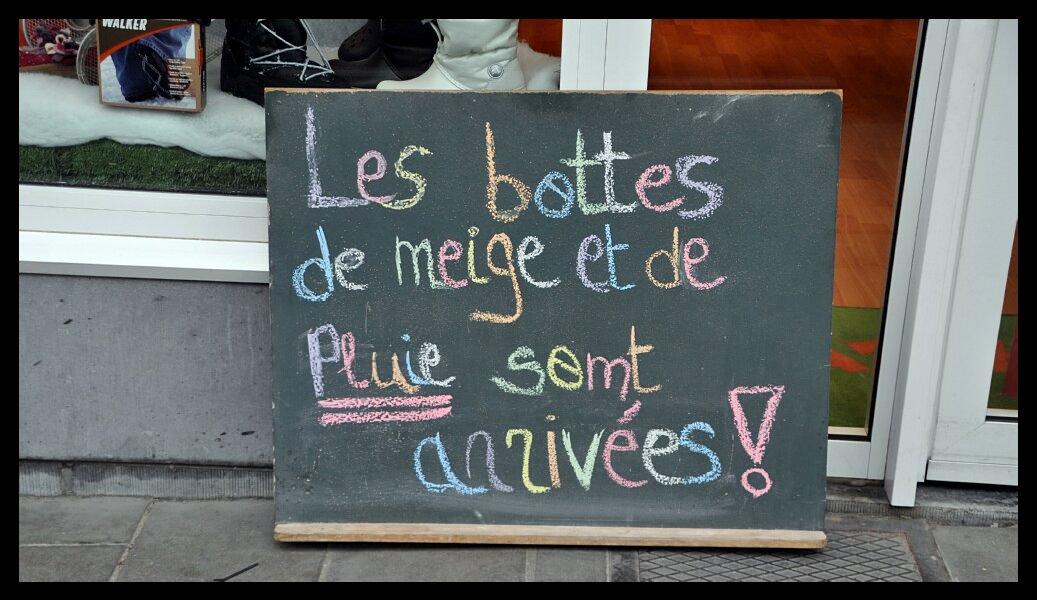 WALKER
Les bottes
de neige et de
Pluie sont
arrivées!